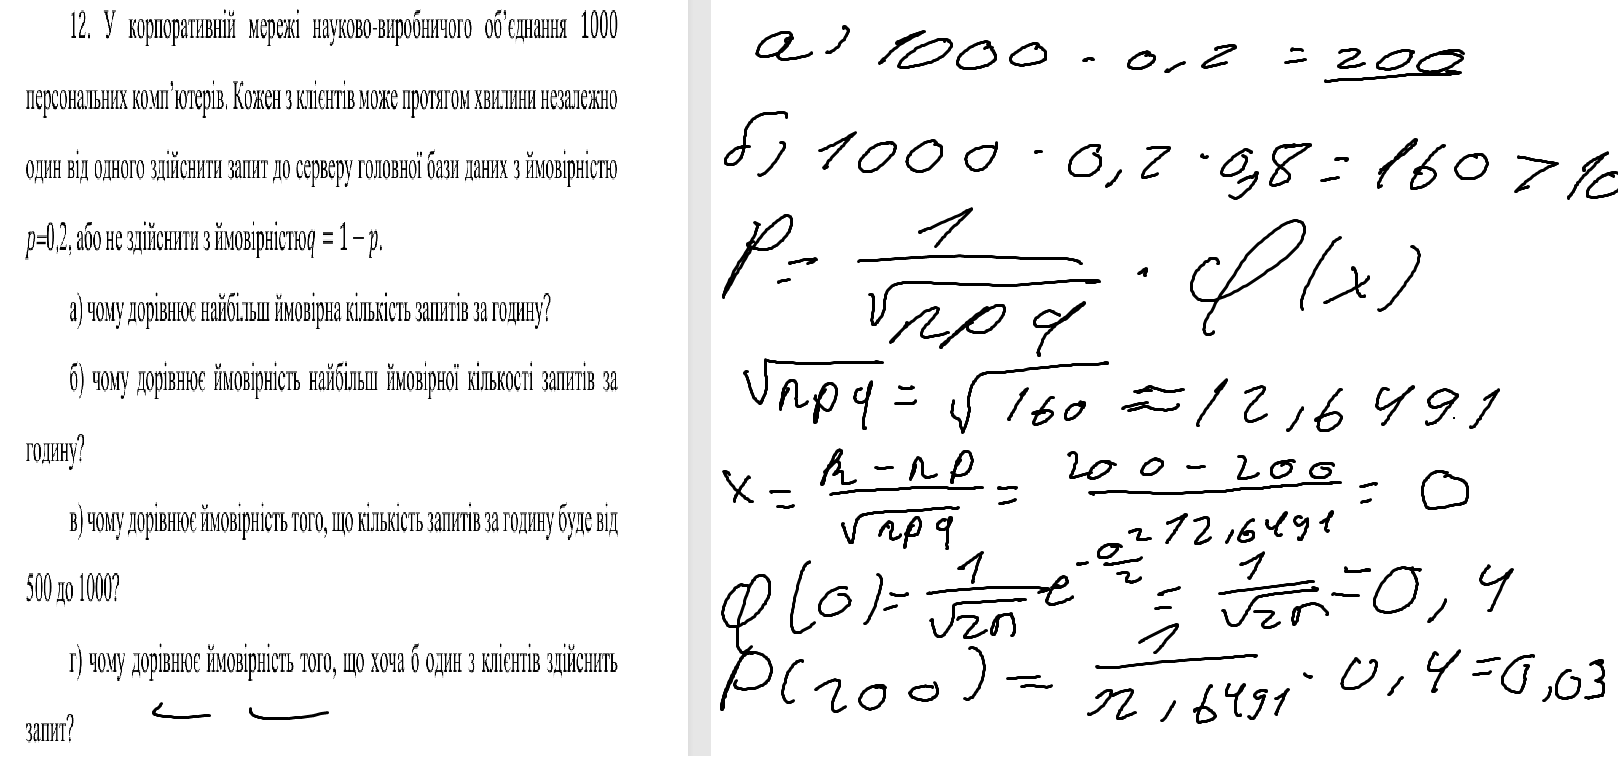 12. У корпоративній мережі науково-виробничого об’єднання 1000
персональних комп’ютерів. Кожен з клієнтів може протягом хвилини незалежно
один від одного здійснити запит до серверу головної бази даних з ймовірністю
p=0,2, або не здійснити з ймовірністюq = 1 – p.
а) чому дорівнює найбільш ймовірна кількість запитів за годину?
б) чому дорівнює ймовірність найбільш ймовірної кількості запитів за
годину?
в) чому дорівнює ймовірність того, що кількість запитів за годину буде від
500 до 1000?
г) чому дорівнює ймовірність того, що хоча б один з клієнтів здійснить
запит?
а) 1000 · 0,2 = 200
б) 1000 · 0,2 · 0,8 = 160 > 10
P = 1/√npq · φ(x)
√npq = √160 ≈ 12,6491
x = (k - np)/√npq = (200 - 200)/12,6491 = 0
φ(0) = 1/√2π e^(-0²/2) = 1/√2π = 0,4
P(200) = 1/12,6491 · 0,4 = 0,03